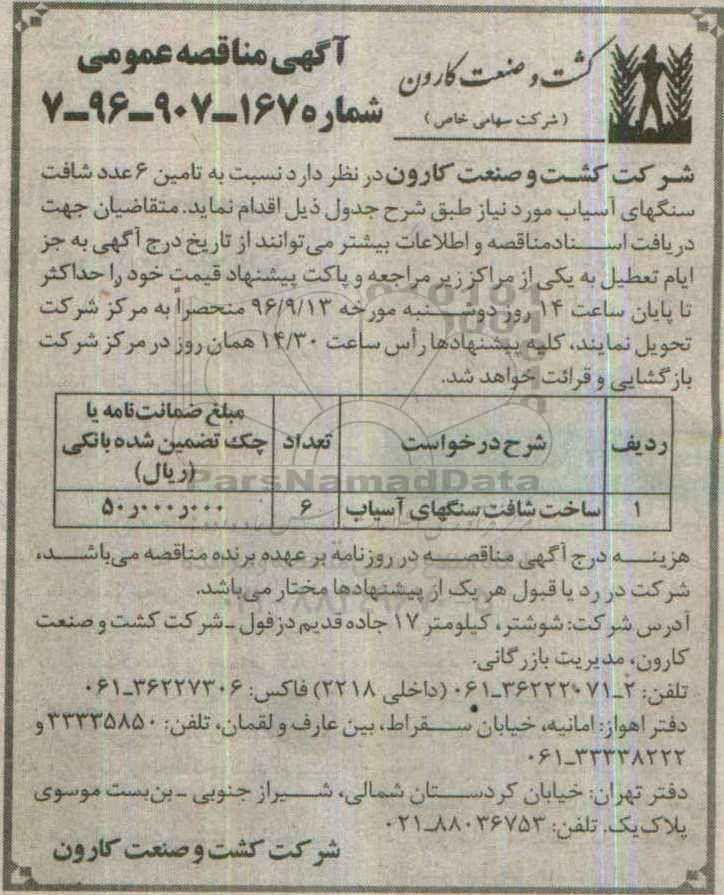 آگهی مناقصه عمومی
شماره ۱۶۷-۹۰۷-۹۶-۷
کشت و صنعت کارون
(شرکت سهامی خاص)
شرکت کشت و صنعت کارون در نظر دارد نسبت به تامین ۶ عدد شافت
سنگهای آسیاب مورد نیاز طبق شرح جدول ذیل اقدام نماید. متقاضیان جهت
دریافت اسناد مناقصه و اطلاعات بیشتر می‌توانند از تاریخ درج آگهی به جز
ایام تعطیل به یکی از مراکز زیر مراجعه و پاکت پیشنهاد قیمت خود را حداکثر
تا پایان ساعت ۱۴ روز دوشنبه مورخه ۹۶/۹/۱۳ منحصراً به مرکز شرکت
تحویل نمایند، کلیه پیشنهادها رأس ساعت ۱۴/۳۰ همان روز در مرکز شرکت
بازگشایی و قرائت خواهد شد.
ردیف | شرح درخواست | تعداد | مبلغ ضمانت‌نامه یا
چک تضمین شده بانکی
(ریال)
۱ | ساخت شافت سنگهای آسیاب | ۶ | ۵۰ر۰۰۰ر۰۰۰
ParsNamadData
هزینه درج آگهی مناقصه در روزنامه بر عهده برنده مناقصه می‌باشد،
شرکت در رد یا قبول هر یک از پیشنهادها مختار می‌باشد.
آدرس شرکت: شوشتر، کیلومتر ۱۷ جاده قدیم دزفول ـ شرکت کشت و صنعت
کارون، مدیریت بازرگانی.
تلفن: ۲ـ۳۶۲۲۲۰۷۱ـ۰۶۱ (داخلی ۲۲۱۸) فاکس: ۳۶۲۲۷۳۰۶ـ۰۶۱
دفتر اهواز: امانیه، خیابان سقراط، بین عارف و لقمان، تلفن: ۳۳۳۳۵۸۵۰ و
۳۳۳۳۸۲۲۲ـ۰۶۱
دفتر تهران: خیابان کردستان شمالی، شیراز جنوبی ـ بن‌بست موسوی
پلاک یک. تلفن: ۸۸۰۳۶۷۵۳ـ۰۲۱
شرکت کشت و صنعت کارون